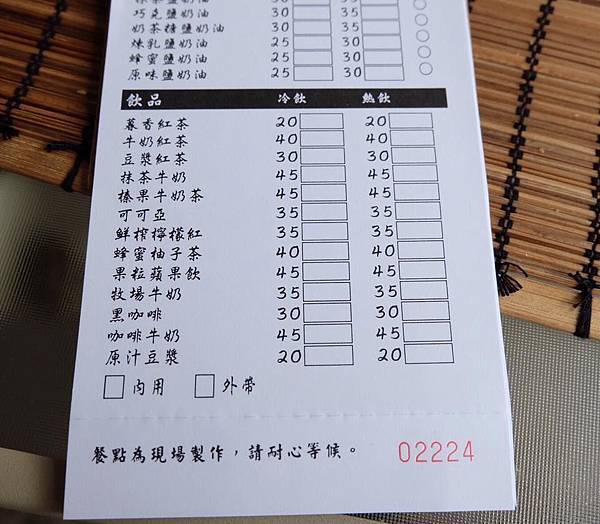 巧克鹽奶油 30 35
奶茶糖鹽奶油 30 30
煉乳鹽奶油 25 30
蜂蜜鹽奶油 25 30
原味鹽奶油 25 30
飲品 冷飲 熱飲
暮香紅茶 20 20
牛奶紅茶 40 40
豆漿紅茶 30 30
抹茶牛奶 45 45
榛果牛奶茶 45 45
可可亞 35 35
鮮榨檸檬紅 35 35
蜂蜜柚子茶 40 40
果粒蘋果飲 45 45
牧場牛奶 35 35
黑咖啡 30 30
咖啡牛奶 45 45
原汁豆漿 20 20
內用 外帶
餐點為現場製作，請耐心等候。 02224